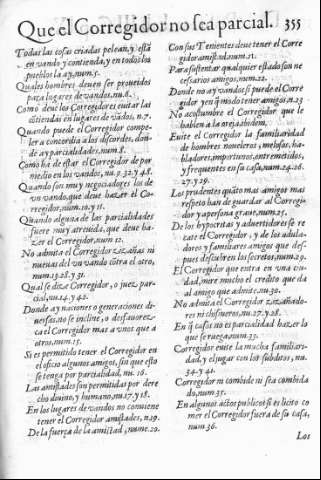 Que el Corregidor no sea parcial. 355
Todas las cosas criadas pelean, y està
en vando y contienda, y en todos los
pueblos la ay, num.5.
Quales hombres deuen ser proueidos
para lugares de vandos, nu.8.
Como deue los Corregidores euitar las
cõtiendas en lugares de vãdos, n.7.
Quando puede el Corregidor compe-
ler a concordia a los discordes, don-
de ay parcialidades, num.8.
Como ha de estar el Corregidor de por
medio en los vandos, nu.9.32.y 48.
Quando son muy negociadores los de
vn vando, que deue hazer el Co-
rregidor, num.10.y 11.
Quando alguna de las parcialidades
fuere muy atreuida, que deue ha-
zer el Corregidor, num 12.
No admita el Corregidor zizañas ni
nueuas del vn vando cõtra el otro,
num.13.28.y 31.
Qual se dize Corregidor, o juez par-
cial, nu.14.y 42.
Donde ay naciones o generaciones di-
uersas, no se incline, o desfauorez-
ca el Corregidor mas a vnos que a
otros, num.15.
Si es permitido tener el Corregidor en
el oficio algunos amigos, sin que esto
se tenga por parcialidad, nu. 16.
Las amistades son permitidas por dere
cho diuino, y humano, nu.17.y 18.
En los lugares de vandos no conuiene
tener el Corregidor amistades, n.19.
De la fuerça de la amistad, nume.20.
Con sus Tenientes deue tener el Corre
gidor amistad, num.21.
Para sustentar qualquier estado son ne
cessarios amigos, num.22.
Donde no ay vandos si puede el Corre
gidor yen q̃ modo tener amigos, n.23
No acostumbre el Corregidor que le
hablen a la oreja, ibidem.
Euite el Corregidor la familiaridad
de hombres noueleros, melosos, ha-
bladores, importunos, entremetidos,
y frequentes en su casa, num.24.26.
27.y 29.
Los prudentes quãto mas amigos mas
respeto han de guardar al Corregi-
dor y a persona graue, num.25.
De los hypocritas y aduertidores se re
cate el Corregidor, y de los adula-
dores y familiares amigos que des-
pues descubren los secretos, num.29.
El Corregidor que entra en vna ciu-
dad, mire mucho el credito que da
al amigo que admite, nu.30.
No admita el Corregidor zizañado-
res ni chismeros, nu.27.y 28.
En q̃ casos no es parcialidad hazer lo
que se ruega, num.33.
Corregidor euite la mucha familiari-
dad, y el jugar con los subditos, nu.
34.y 41.
Corregidor ni combide ni sea combida
do, num.35.
En algunos actos publicos si es licito co
mer el Corregidor fuera de su casa,
num 36.
Los